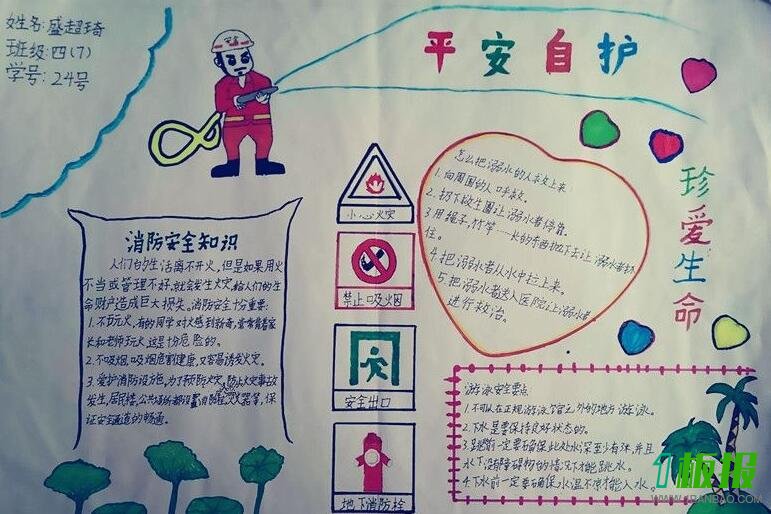 姓名:盛超琦
班级:四(7)
学号:24号
安全
平安自护
珍爱生命
消防安全知识
人们的生活离不开火,但是如果用火
不当或管理不好,就会发生火灾,给人们的生
命财产造成巨大损失。消防安全十分重要:
1.不玩火,有的同学对火感到新奇,常常背着家
长和老师玩火,这是十分危险的。
2.不吸烟,吸烟危害健康,又容易诱发火灾。
3.爱护消防设施,为了预防火灾,防止火灾事故
发生,居民楼,公共场所都设置消防栓,灭火器等,保
证安全通道的畅通。
小心火灾
禁止吸烟
安全出口
地下消防栓
怎么把溺水的人救上来
1.向周围的人呼救。
2.扔下救生圈让溺水者停靠。
3.用绳子,竹竿……长的东西抛下去让溺水者抓
住。
4.把溺水者从水中拉上来。
5.把溺水者送入医院让溺水者
进行救治。
游泳安全要点
1.不可以在正规游泳馆之外的地方游泳。
2.下水是要保持良好状态的。
3.跳前一定要确保此处水深至少有米,并且
水下没障碍物的情况下才能跳水。
4.下水前一定要确保水温不凉才能入水。
板报
WWW.1BANBAO.COM